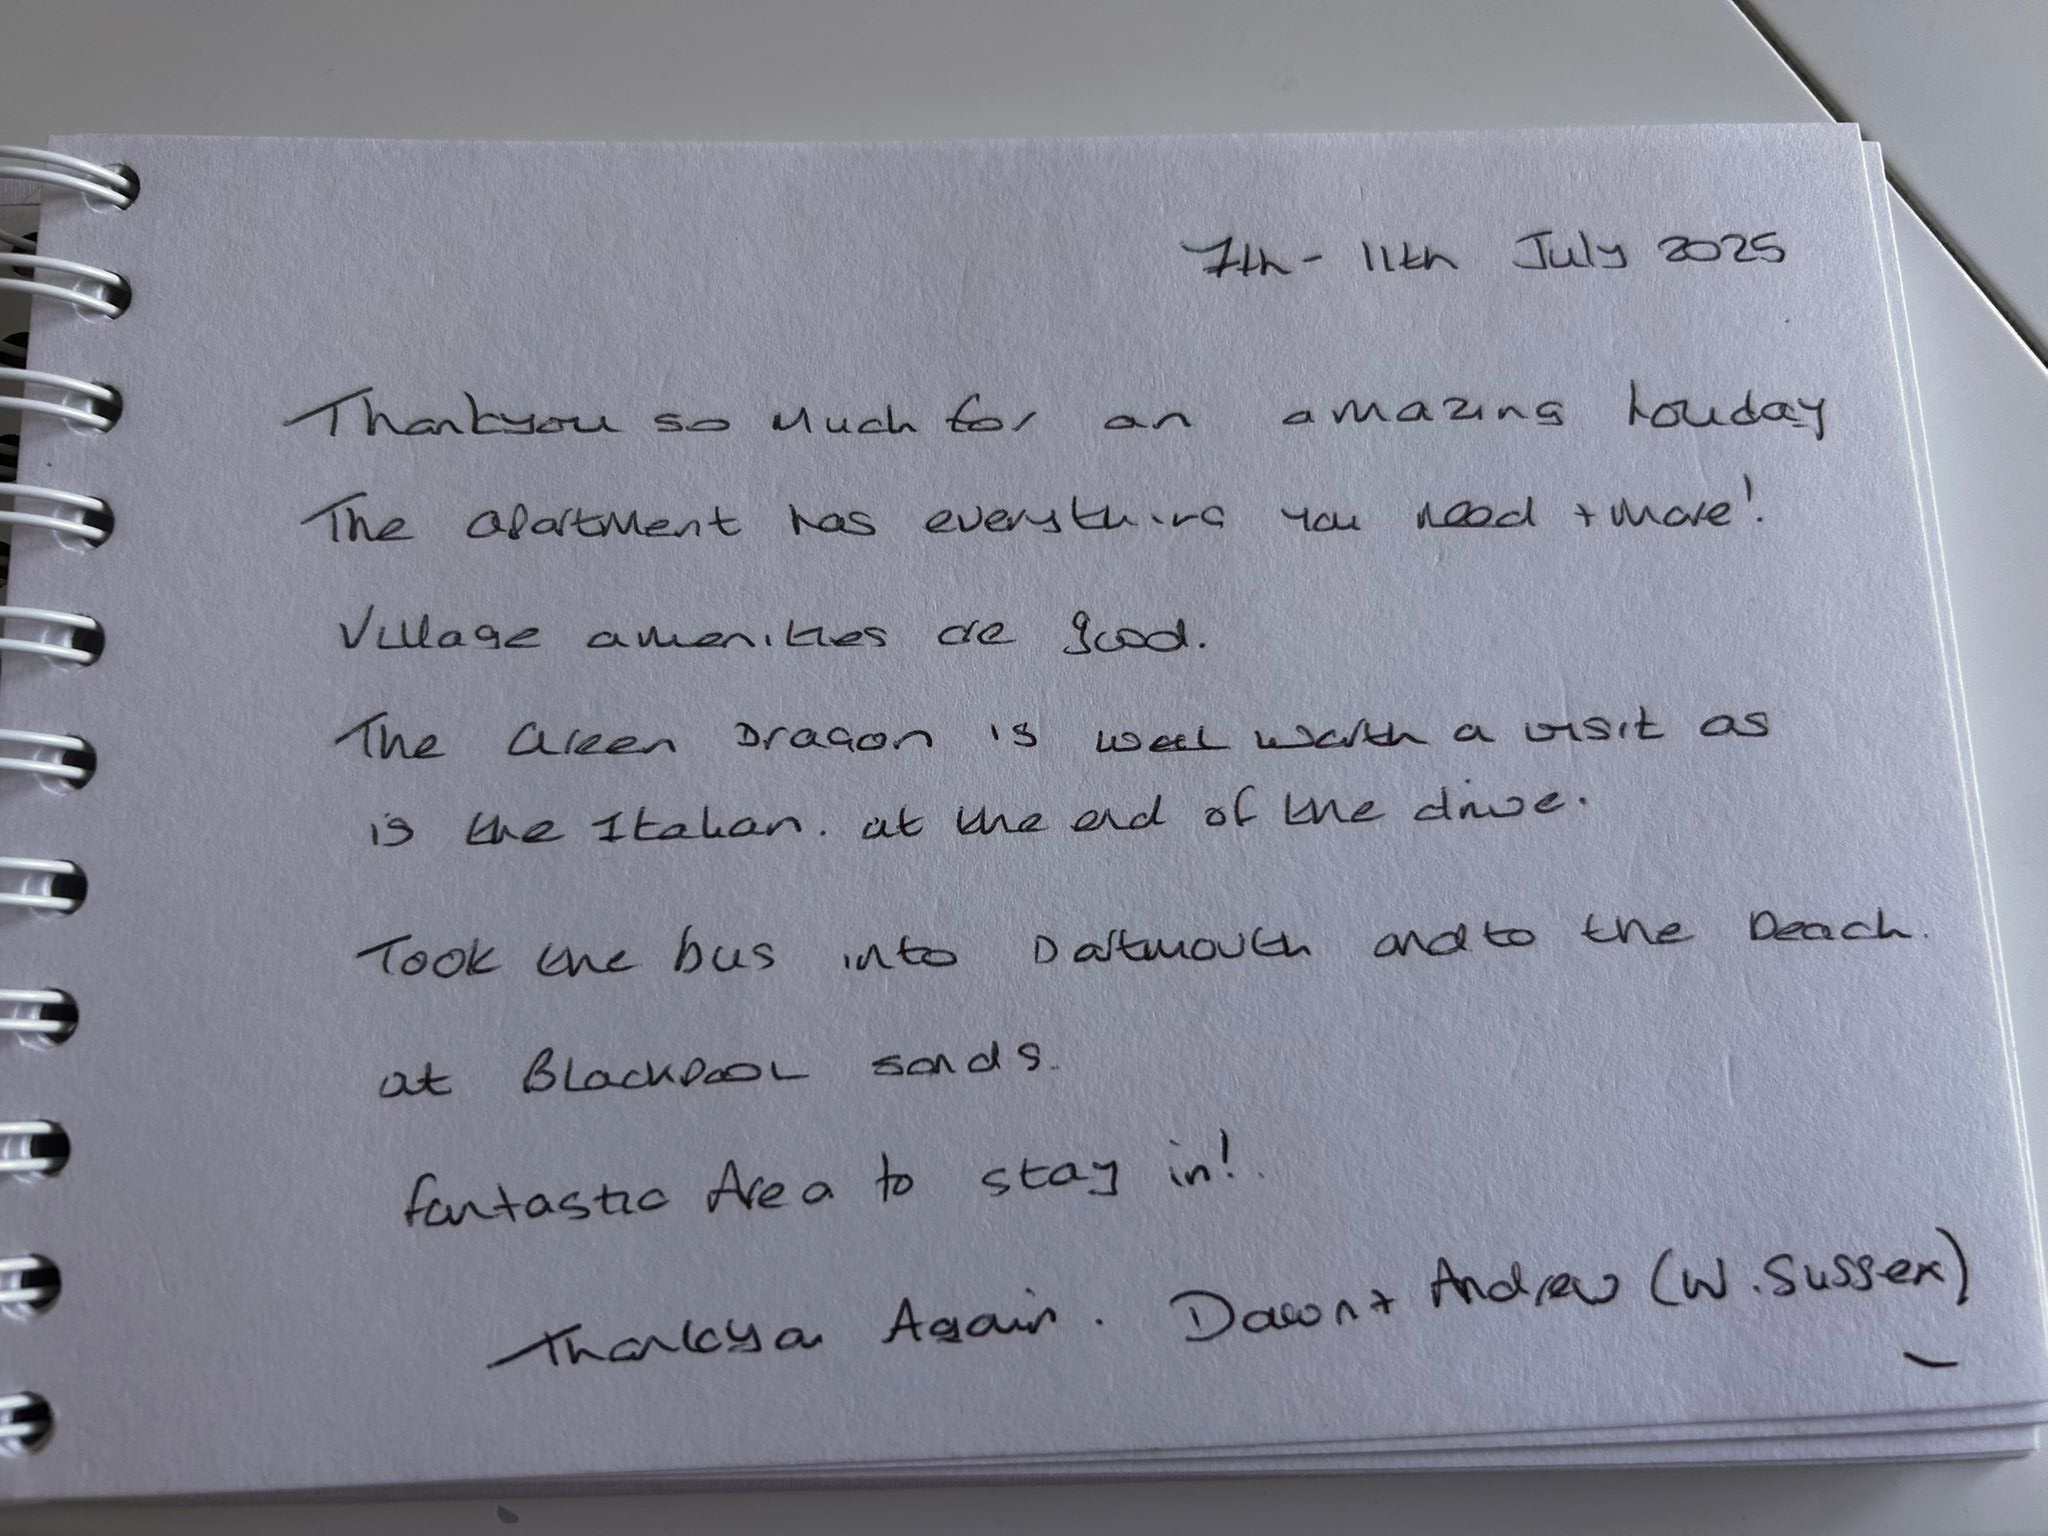 7th - 11th July 2025
Thankyou so much for an amazing holiday
The apartment has everything you need + more!
Village amenities are good.
The Green Dragon is well worth a visit as
is the Italian. at the end of the drive.
Took the bus into Dartmouth and to the Beach.
at Blackpool sands.
fantastic Area to stay in!
Thankyou Again. Dawn + Andrew (W. Sussex)